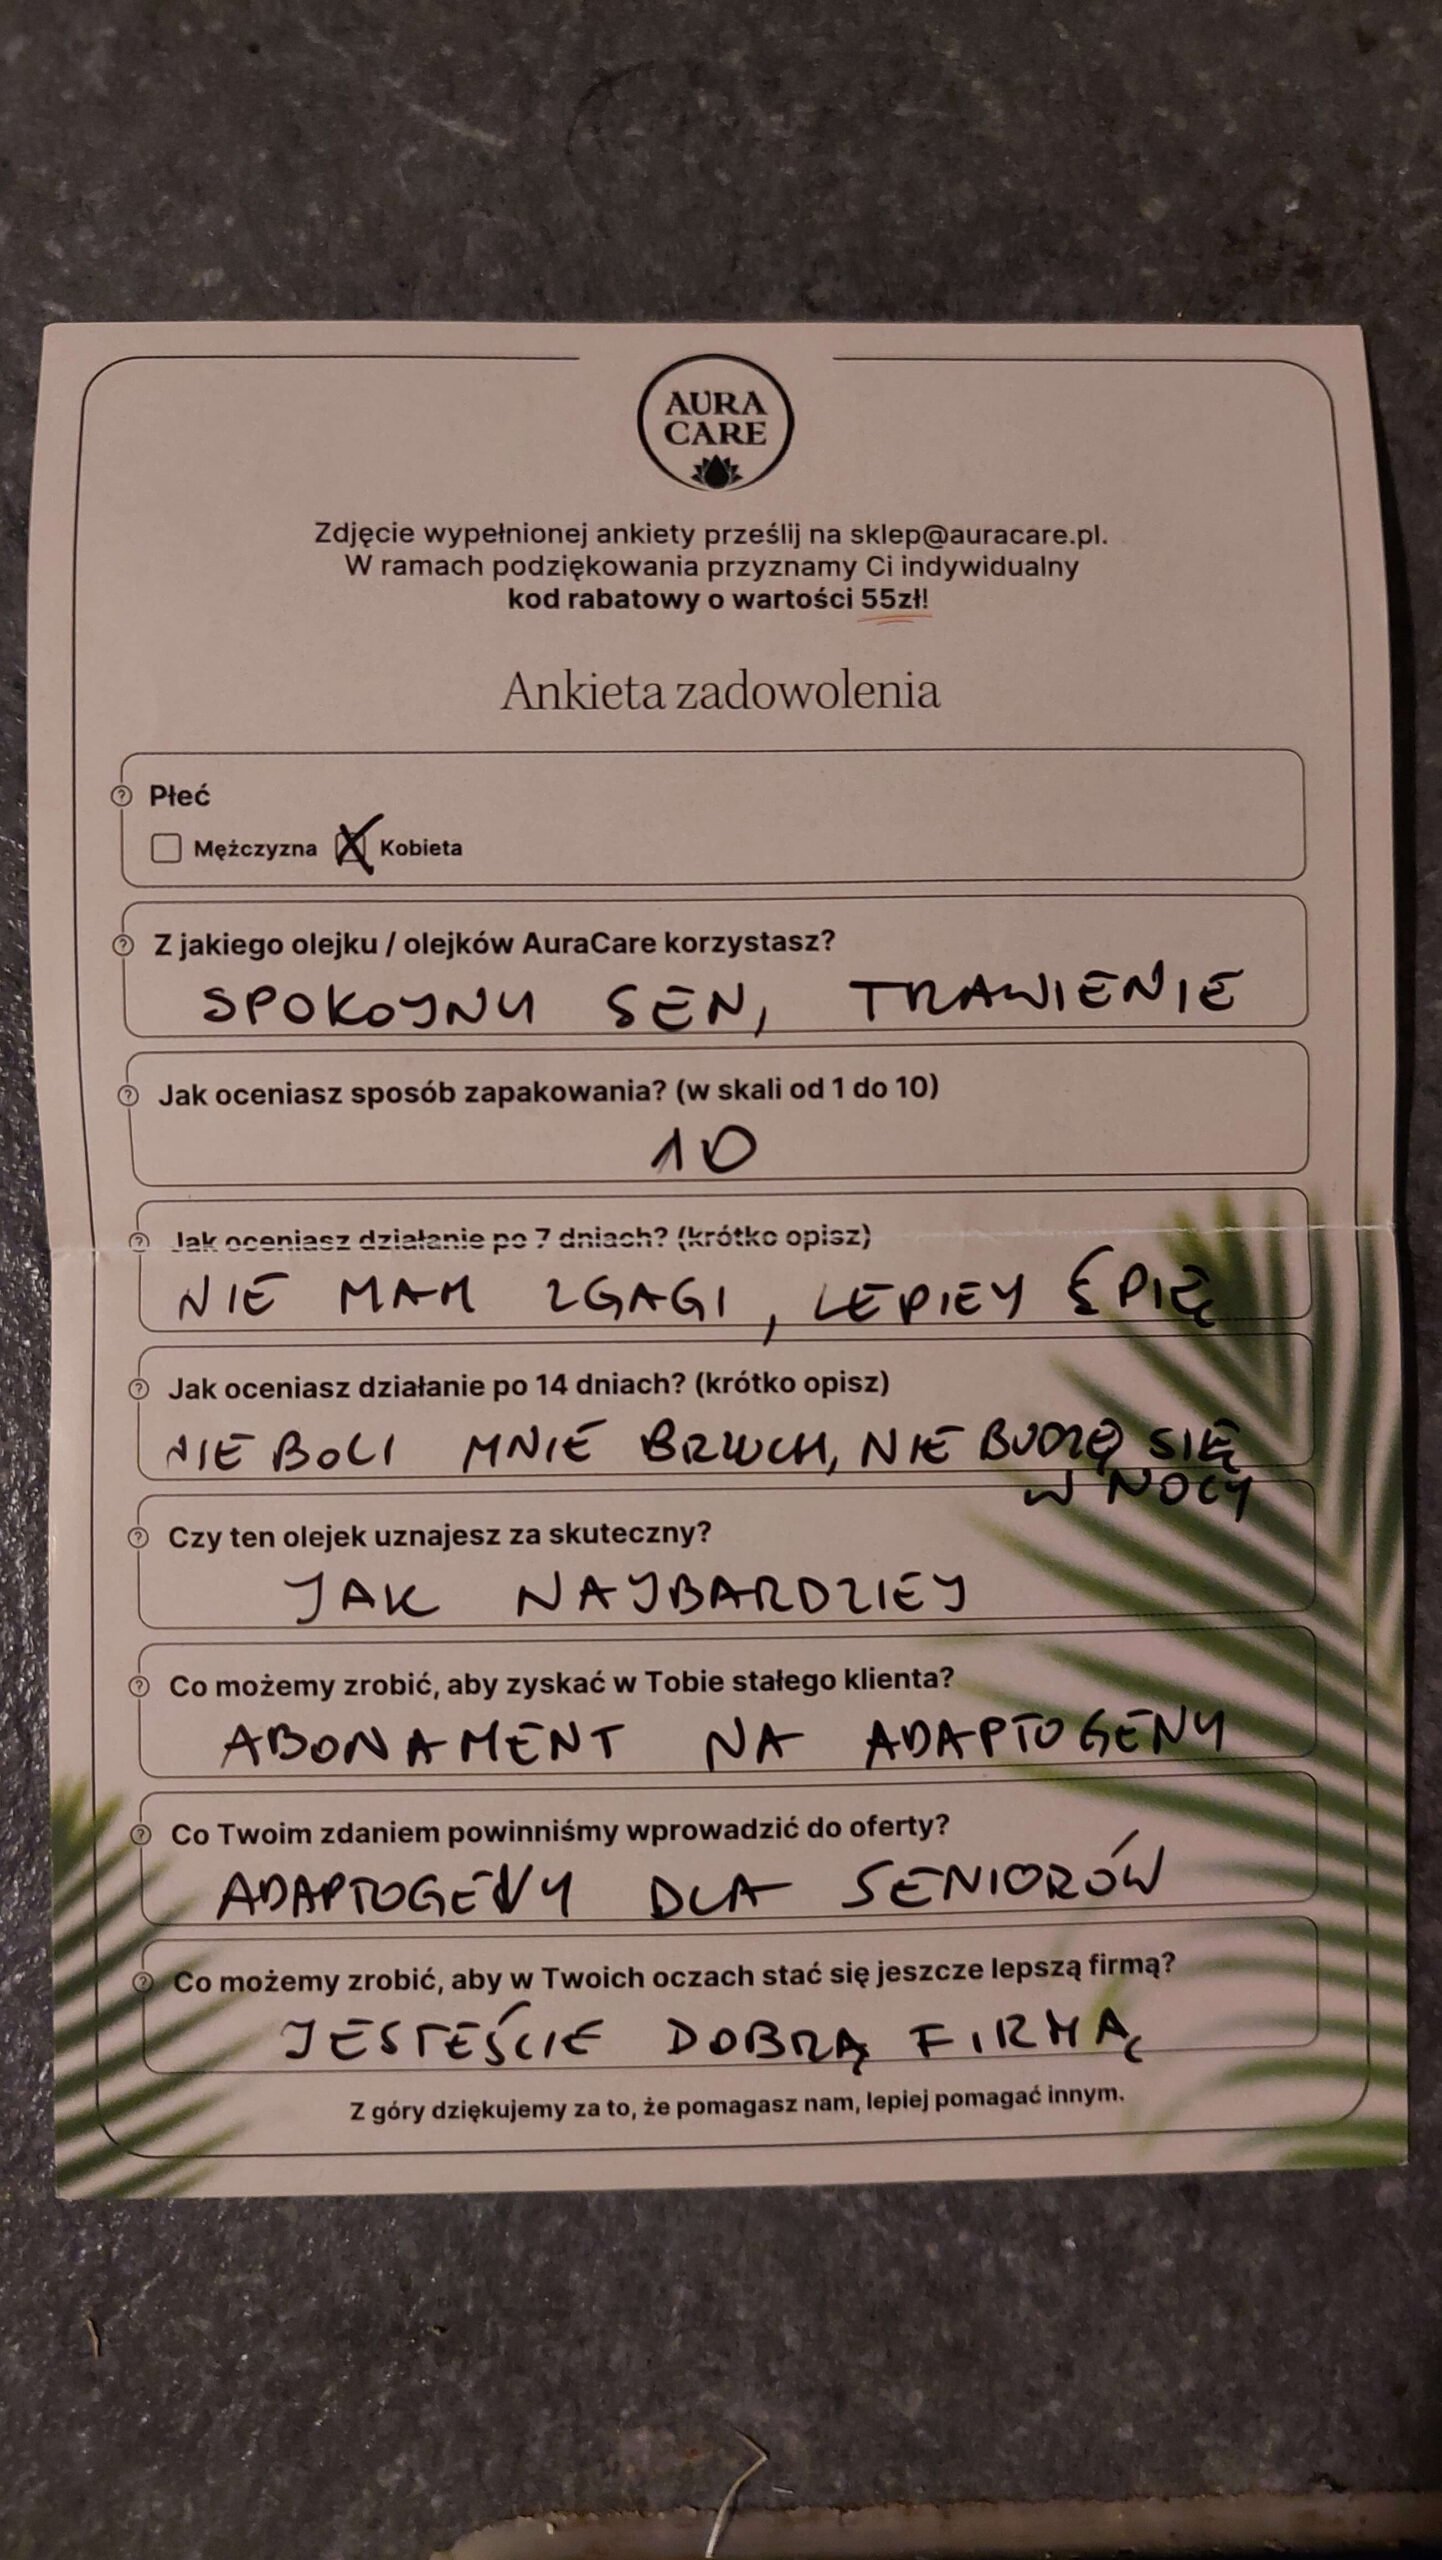 AURA
CARE
Zdjęcie wypełnionej ankiety prześlij na sklep@auracare.pl.
W ramach podziękowania przyznamy Ci indywidualny
kod rabatowy o wartości 55zł!
Ankieta zadowolenia
Płeć
Mężczyzna Kobieta
Z jakiego olejku / olejków AuraCare korzystasz?
SPOKOJNY SEN, TRAWIENIE
Jak oceniasz sposób zapakowania? (w skali od 1 do 10)
10
Jak oceniasz działanie po 7 dniach? (krótko opisz)
NIE MAM ZGAGI, LEPIEJ ŚPIĘ
Jak oceniasz działanie po 14 dniach? (krótko opisz)
NIE BOLI MNIE BRZUCH, NIE BUDZĘ SIĘ
W NOCY
Czy ten olejek uznajesz za skuteczny?
JAK NAJBARDZIEJ
Co możemy zrobić, aby zyskać w Tobie stałego klienta?
ABONAMENT NA ADAPTOGENY
Co Twoim zdaniem powinniśmy wprowadzić do oferty?
ADAPTOGENY DLA SENIORÓW
Co możemy zrobić, aby w Twoich oczach stać się jeszcze lepszą firmą?
JESTEŚCIE DOBRĄ FIRMĄ
Z góry dziękujemy za to, że pomagasz nam, lepiej pomagać innym.